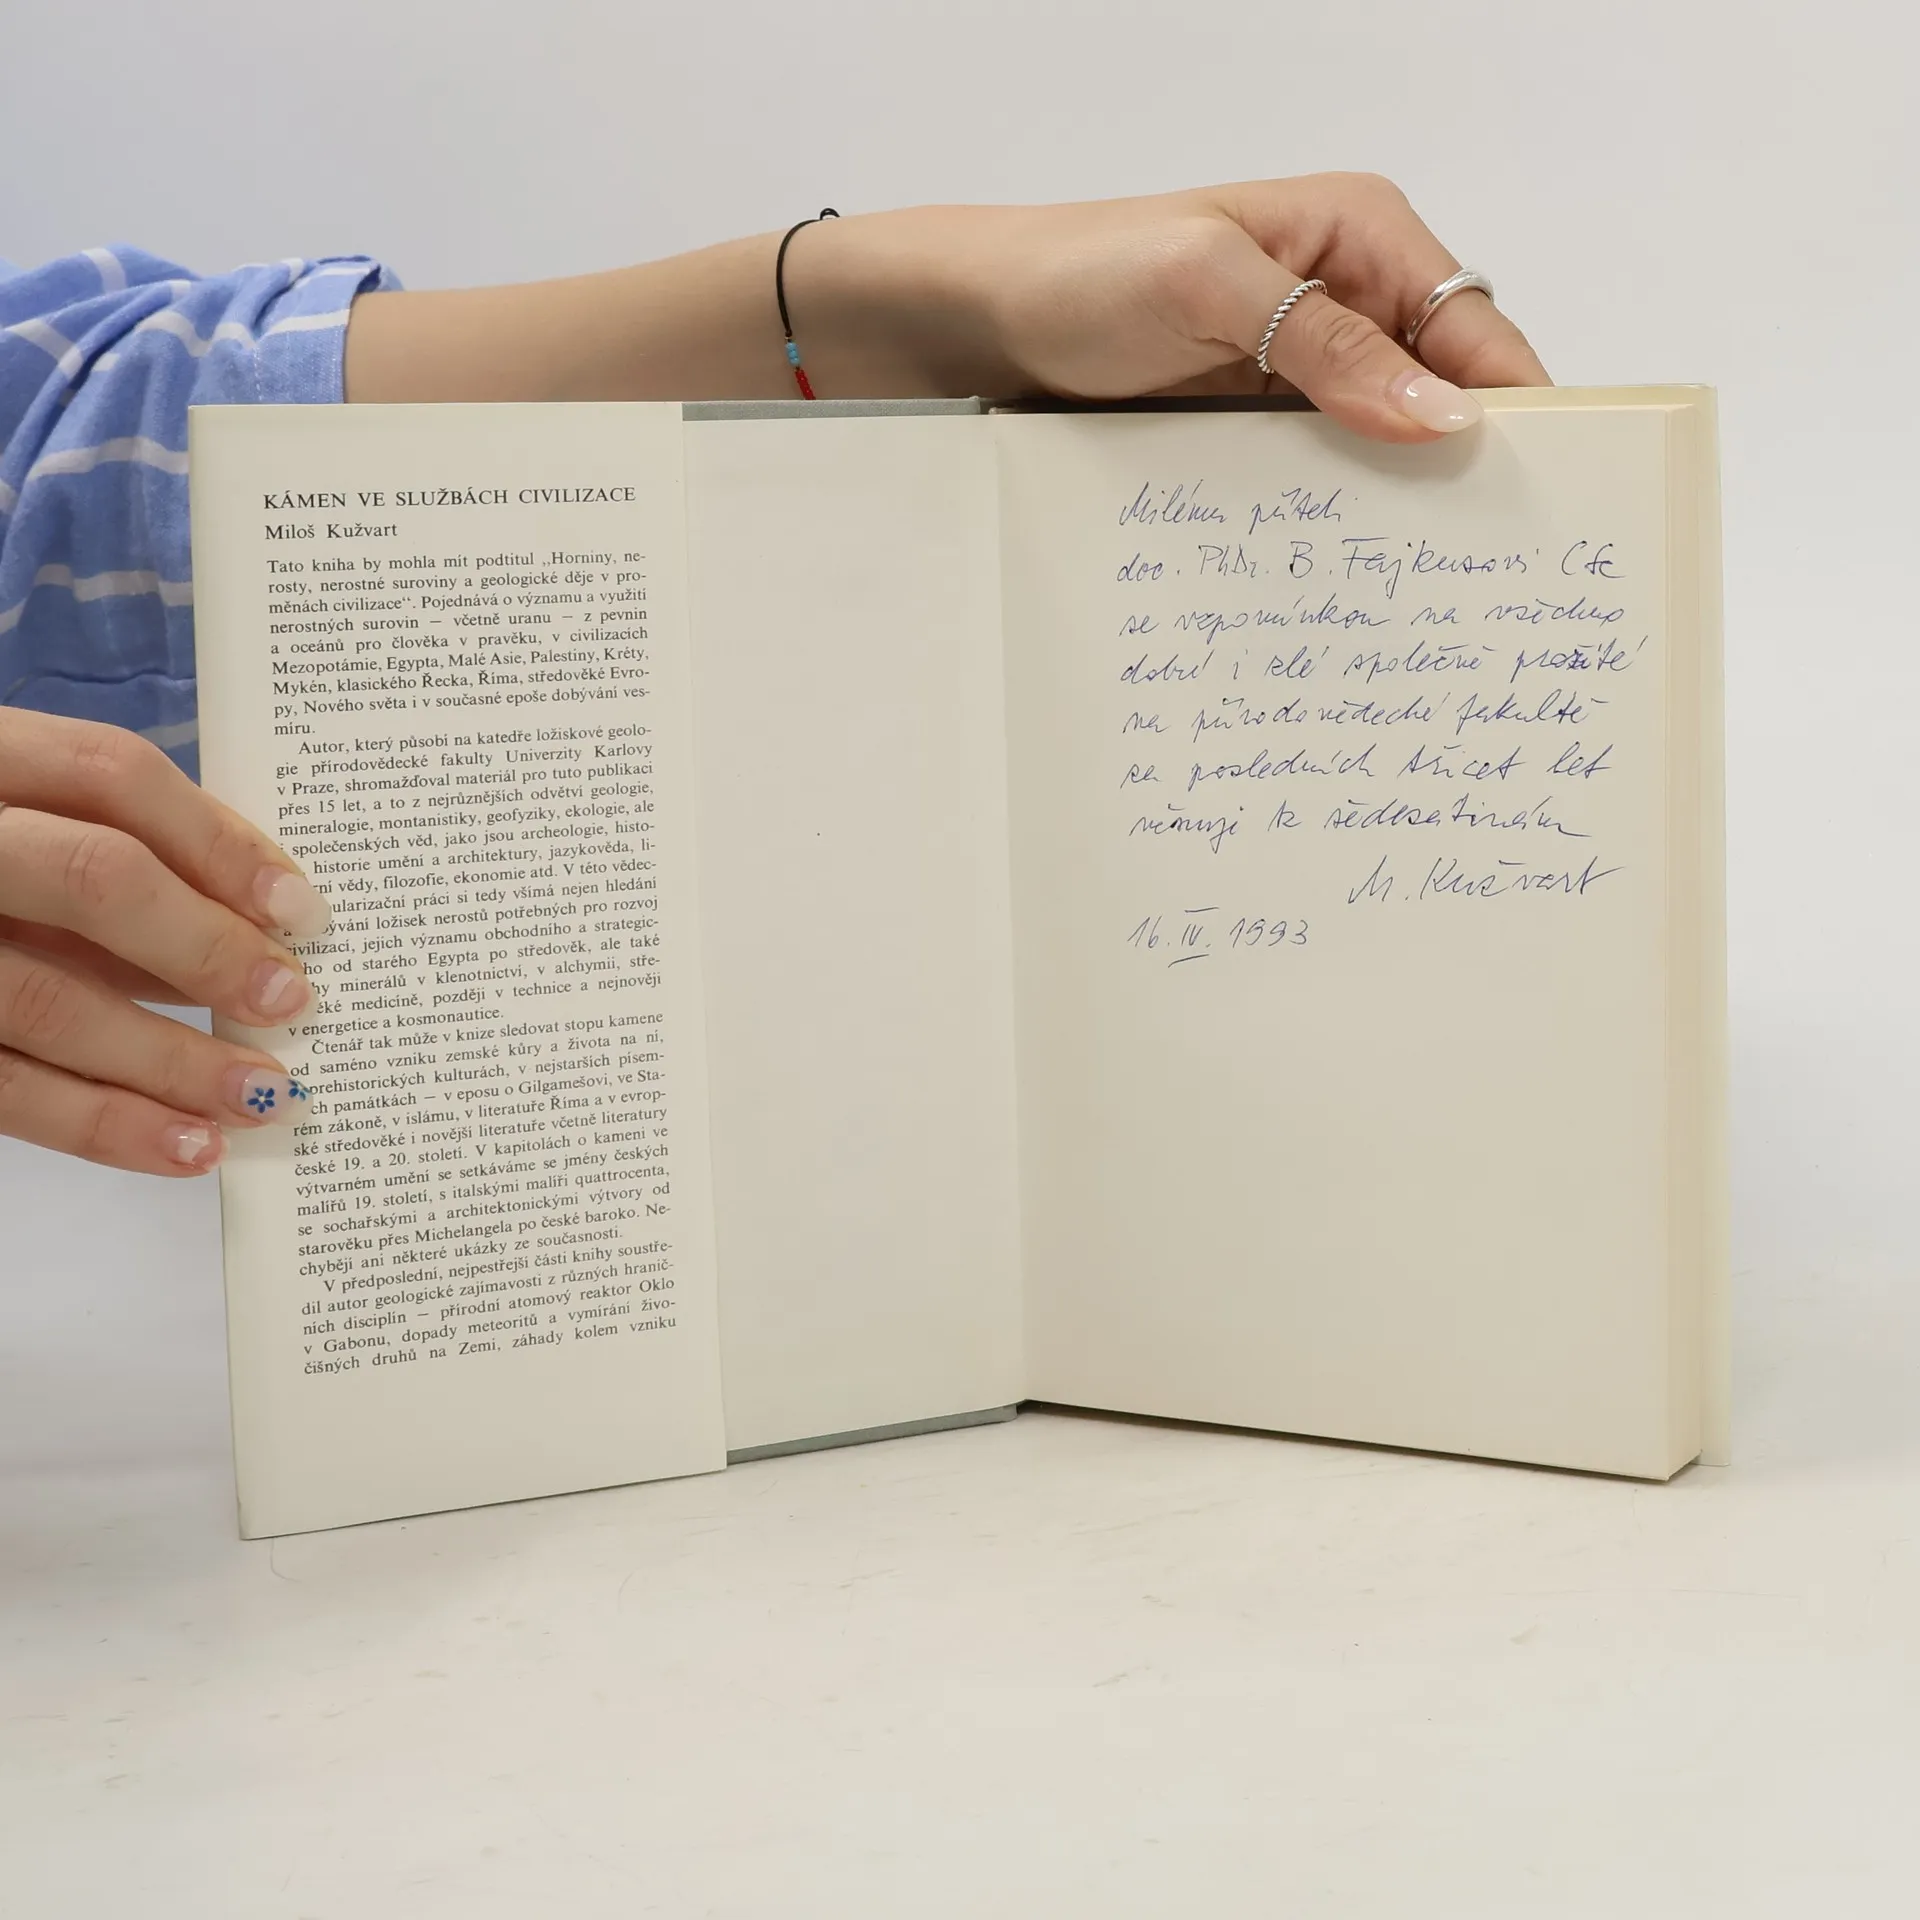 KÁMEN VE SLUŽBÁCH CIVILIZACE
Miloš Kužvart
Tato kniha by mohla mít podtitul „Horniny, ne-
rosty, nerostné suroviny a geologické děje v pro-
měnách civilizace“. Pojednává o významu a využití
nerostných surovin — včetně uranu — z pevnin
a oceánů pro člověka v pravěku, v civilizacích
Mezopotámie, Egypta, Malé Asie, Palestiny, Kréty,
Mykén, klasického Řecka, Říma, středověké Evro-
py, Nového světa i v současné epoše dobývání ves-
míru.
Autor, který působí na katedře ložiskové geolo-
gie přírodovědecké fakulty Univerzity Karlovy
v Praze, shromažďoval materiál pro tuto publikaci
přes 15 let, a to z nejrůznějších odvětví geologie,
mineralogie, montanistiky, geofyziky, ekologie, ale
i společenských věd, jako jsou archeologie, histo-
historie umění a architektury, jazykověda, li-
rní vědy, filozofie, ekonomie atd. V této vědec-
ularizační práci si tedy všímá nejen hledání
a bývání ložisek nerostů potřebných pro rozvoj
civilizací, jejich významu obchodního a strategic-
ho od starého Egypta po středověk, ale také
hy minerálů v klenotnictví, v alchymii, stře-
ěké medicíně, později v technice a nejnověji
v energetice a kosmonautice.
Čtenář tak může v knize sledovat stopu kamene
od saméno vzniku zemské kůry a života na ní,
prehistorických kulturách, v nejstarších písem-
ch památkách — v eposu o Gilgamešovi, ve Sta-
rém zákoně, v islámu, v literatuře Říma a v evrop-
ské středověké i novější literatuře včetně literatury
české 19. a 20. století. V kapitolách o kameni ve
výtvarném umění se setkáváme se jmény českých
malířů 19. století, s italskými malíři quattrocenta,
se sochařskými a architektonickými výtvory od
starověku přes Michelangela po české baroko. Ne-
chybějí ani některé ukázky ze současnosti.
V předposlední, nejpestřejší části knihy soustře-
dil autor geologické zajímavosti z různých hranič-
ních disciplín — přírodní atomový reaktor Oklo
v Gabonu, dopady meteoritů a vymírání živo-
čišných druhů na Zemi, záhady kolem vzniku
Milému příteli
doc. PhDr. B. Fajkusovi CSc
se vzpomínkou na všechno
dobré i zlé společně prožité
na přírodovědecké fakultě
za posledních třicet let
věnuji k šedesátinám
M. Kužvart
16. IV. 1993